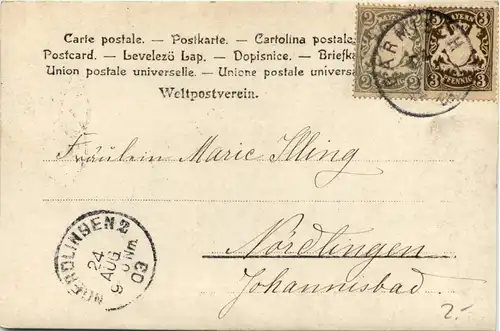 Carte postale. — Postkarte. — Cartolina postale.
Postcard. — Levelező Lap. — Dopisnice. — Briefka
Union postale universelle. — Unione postale universa
Weltpostverein.
2 BAYERN 2
2 PFENNIG 2
3 BAYERN 3
3 PFENNIG 3
Fräulein Marie Illing
Nördlingen
Johannisbad.
NOERDLINGEN 2
24
AUG
9 Nm.
03
2.-